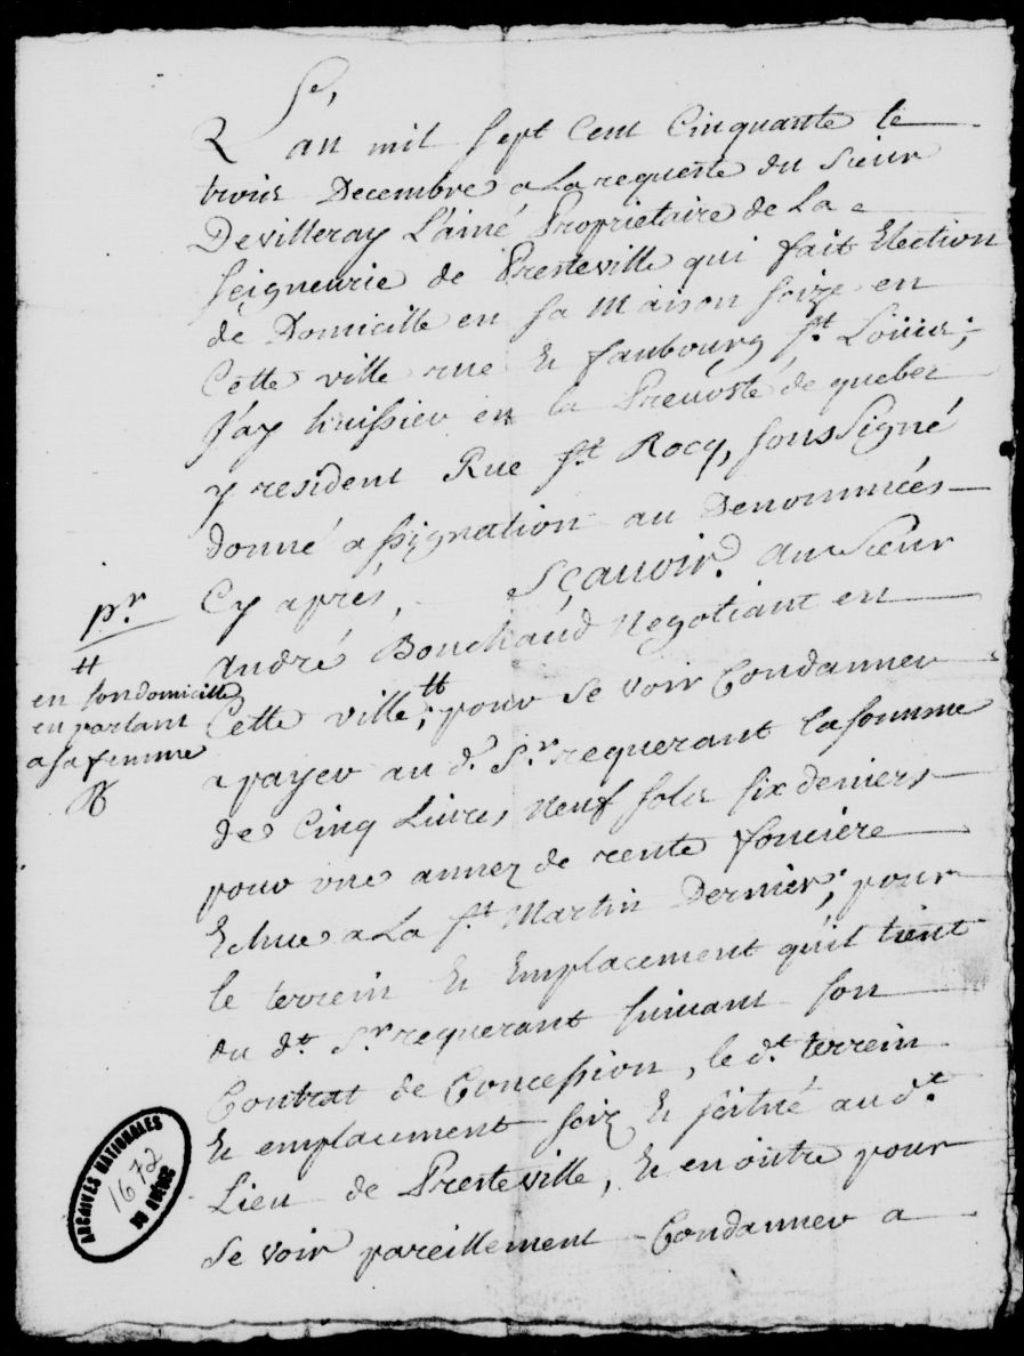 L'an mil Sept Cent Cinquante le
trois Decembre a La requeste du Sieur
Devilleray L'ainé Proprietaire de La
Seigneurie de Presteville qui fait Election
de Domicille en sa Maison size en
Cette ville rue et faubourg St. Loüis;
J'ay huissier en la Prevosté de quebec
y resident Rue St Rocq, soussigné
donné assignation au Denommés
Cy aprés, Sçauoir. au Sieur
André Bouchaud Negotiant en
Cette ville; # pour se voir Condanner
a payer au d. Sr. requerant la somme
de Cinq Livres Neuf sols six deniers
pour une année de rente fonciere
Echue a La St Martin Dernier; pour
le terrein et Emplacement qu'il tient
du dt. Sr. requerant suivant son
Contrat de Concession, le dt. terrein
et emplacement seiz et scitué aud.
Lieu de Presteville, et en outre pour
se voir pareillement Condanner a
pr.
#
en son domicille
en parlant
a sa femme
ARCHIVES NATIONALES
1672
DU QUÉBEC